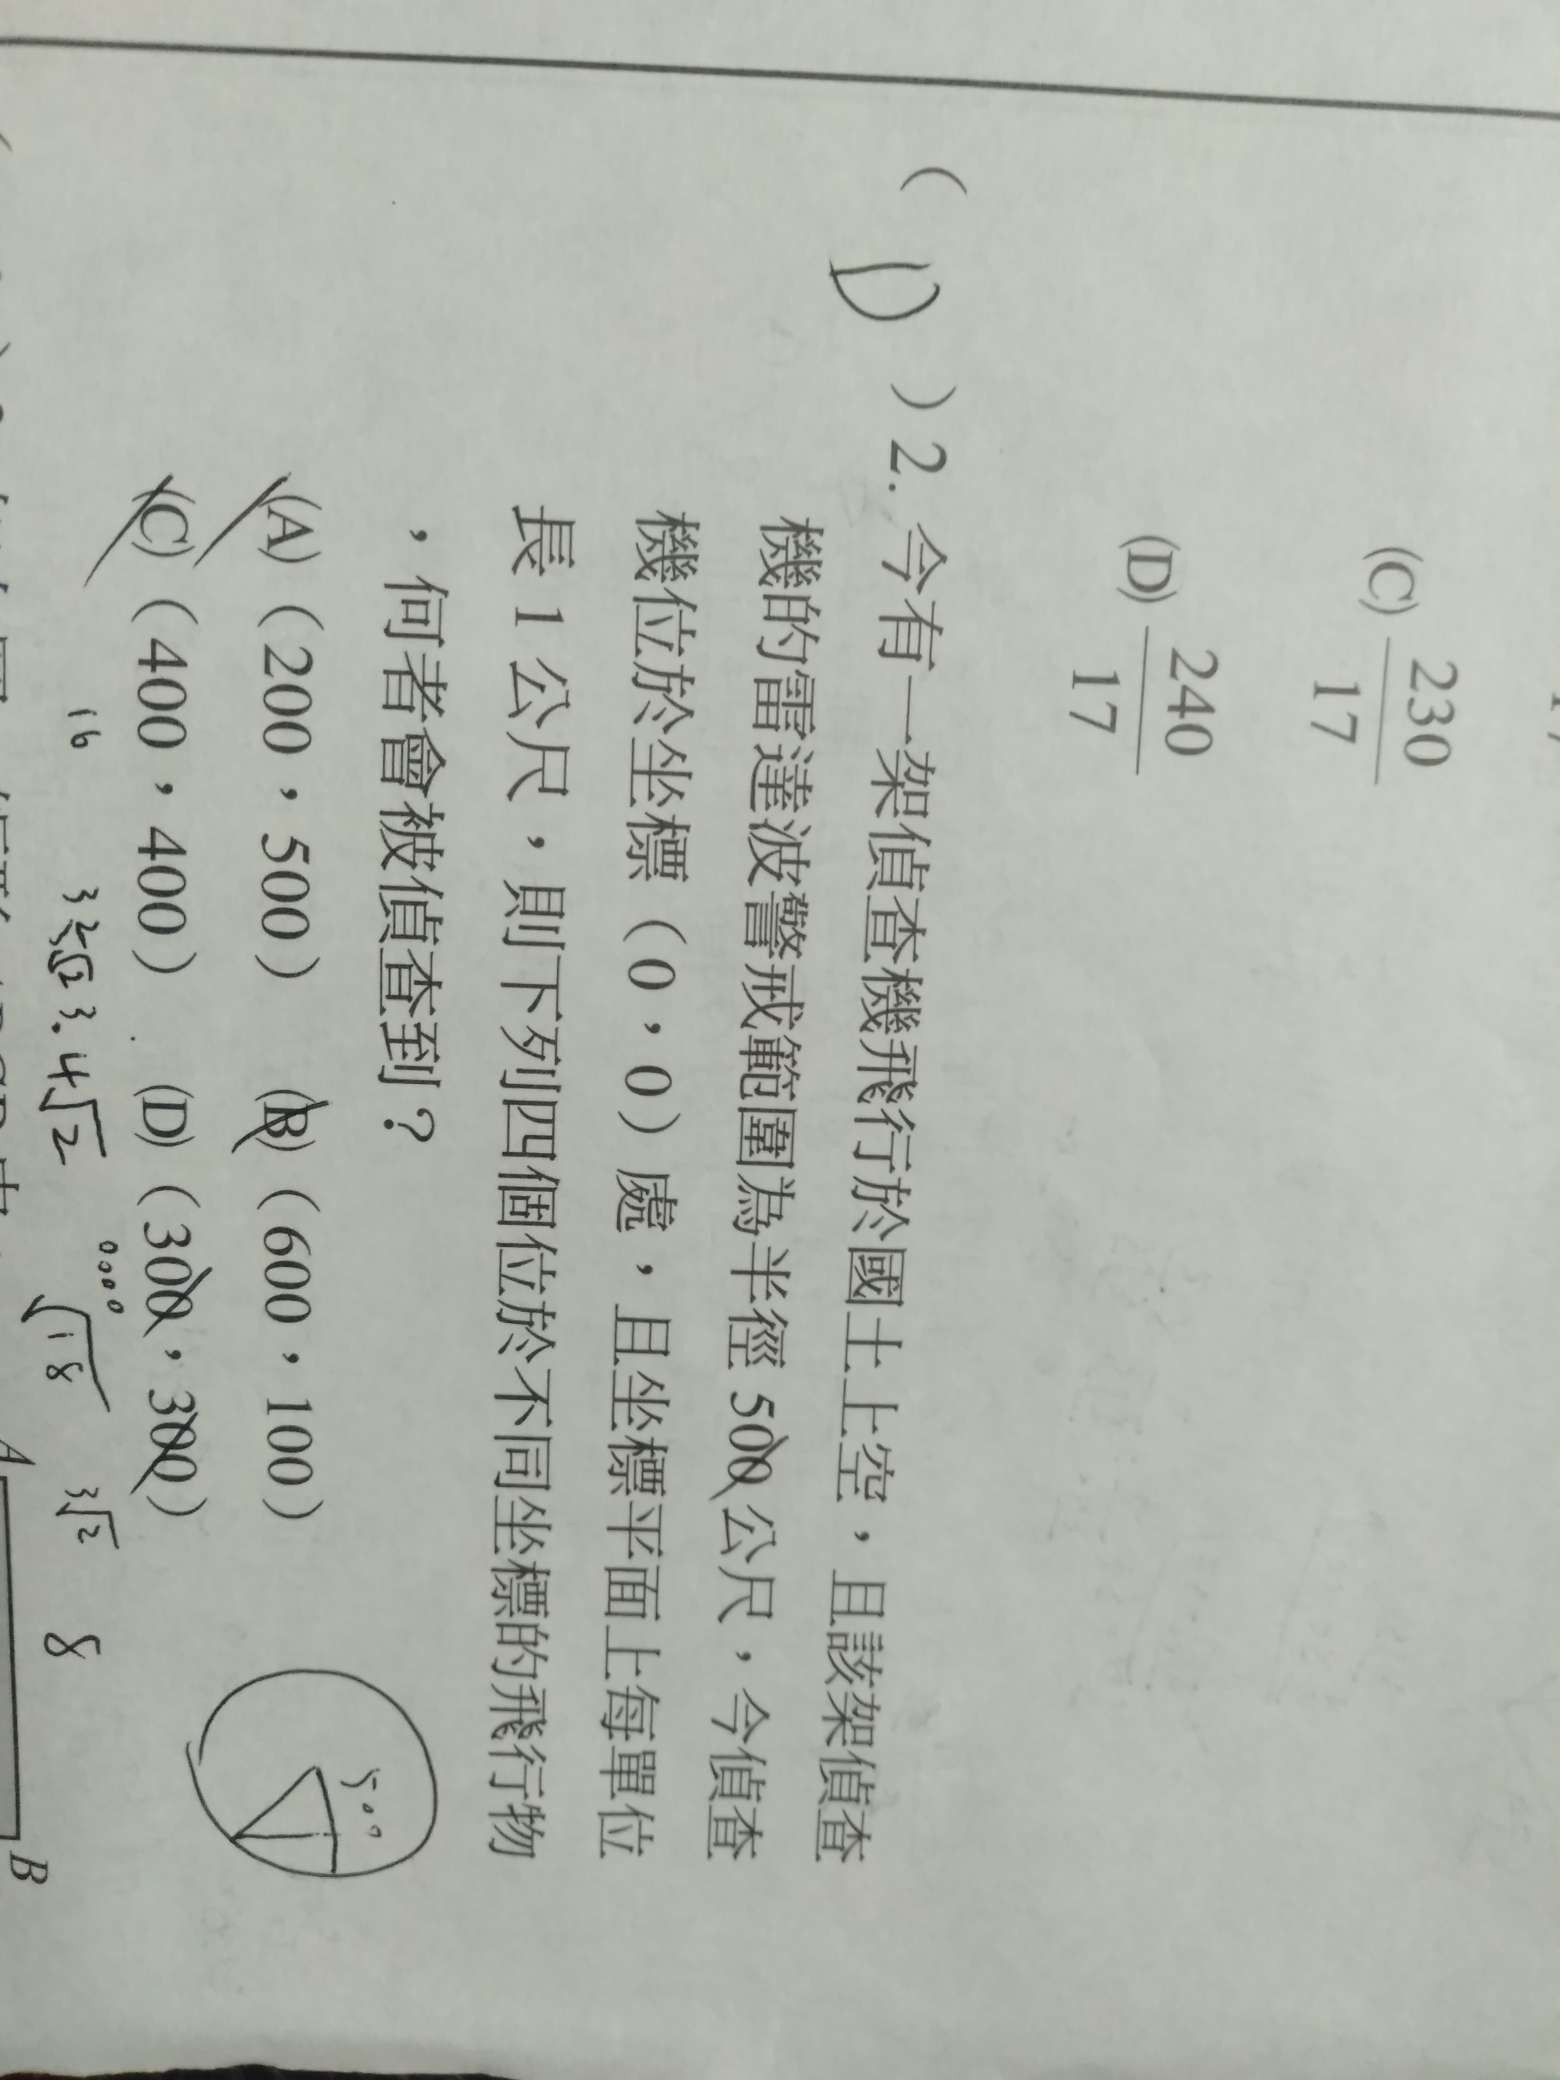 (C) 230/17
(D) 240/17
( D ) 2. 今有一架偵查機飛行於國土上空，且該架偵查
機的雷達波警戒範圍為半徑 500 公尺，今偵查
機位於坐標（0，0）處，且坐標平面上每單位
長 1 公尺，則下列四個位於不同坐標的飛行物
，何者會被偵查到？
500
(A)（200，500） (B)（600，100）
(C)（400，400） (D)（300，300）
16 32 4√2 √18 3√2 8
A B